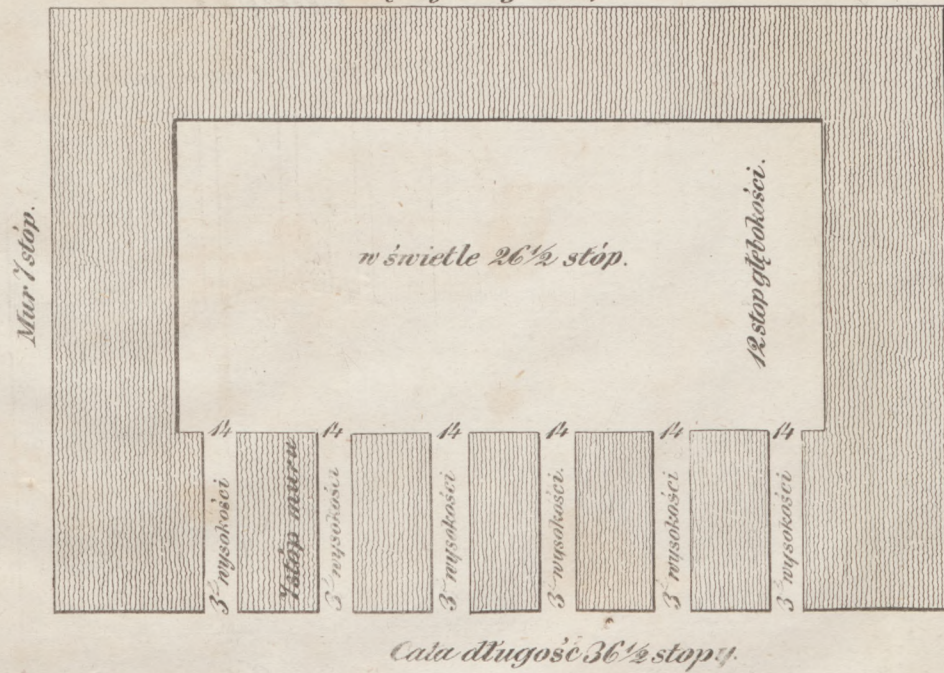 Mur 7 stóp.
w świetle 26½ stóp.
12 stop głębokości.
14 14 14 14 14 14
3' wysokości
7 stóp muru
3' wysokości
3' wysokości
3' wysokości
3' wysokości
3' wysokości
Cała długość 36½ stopy.